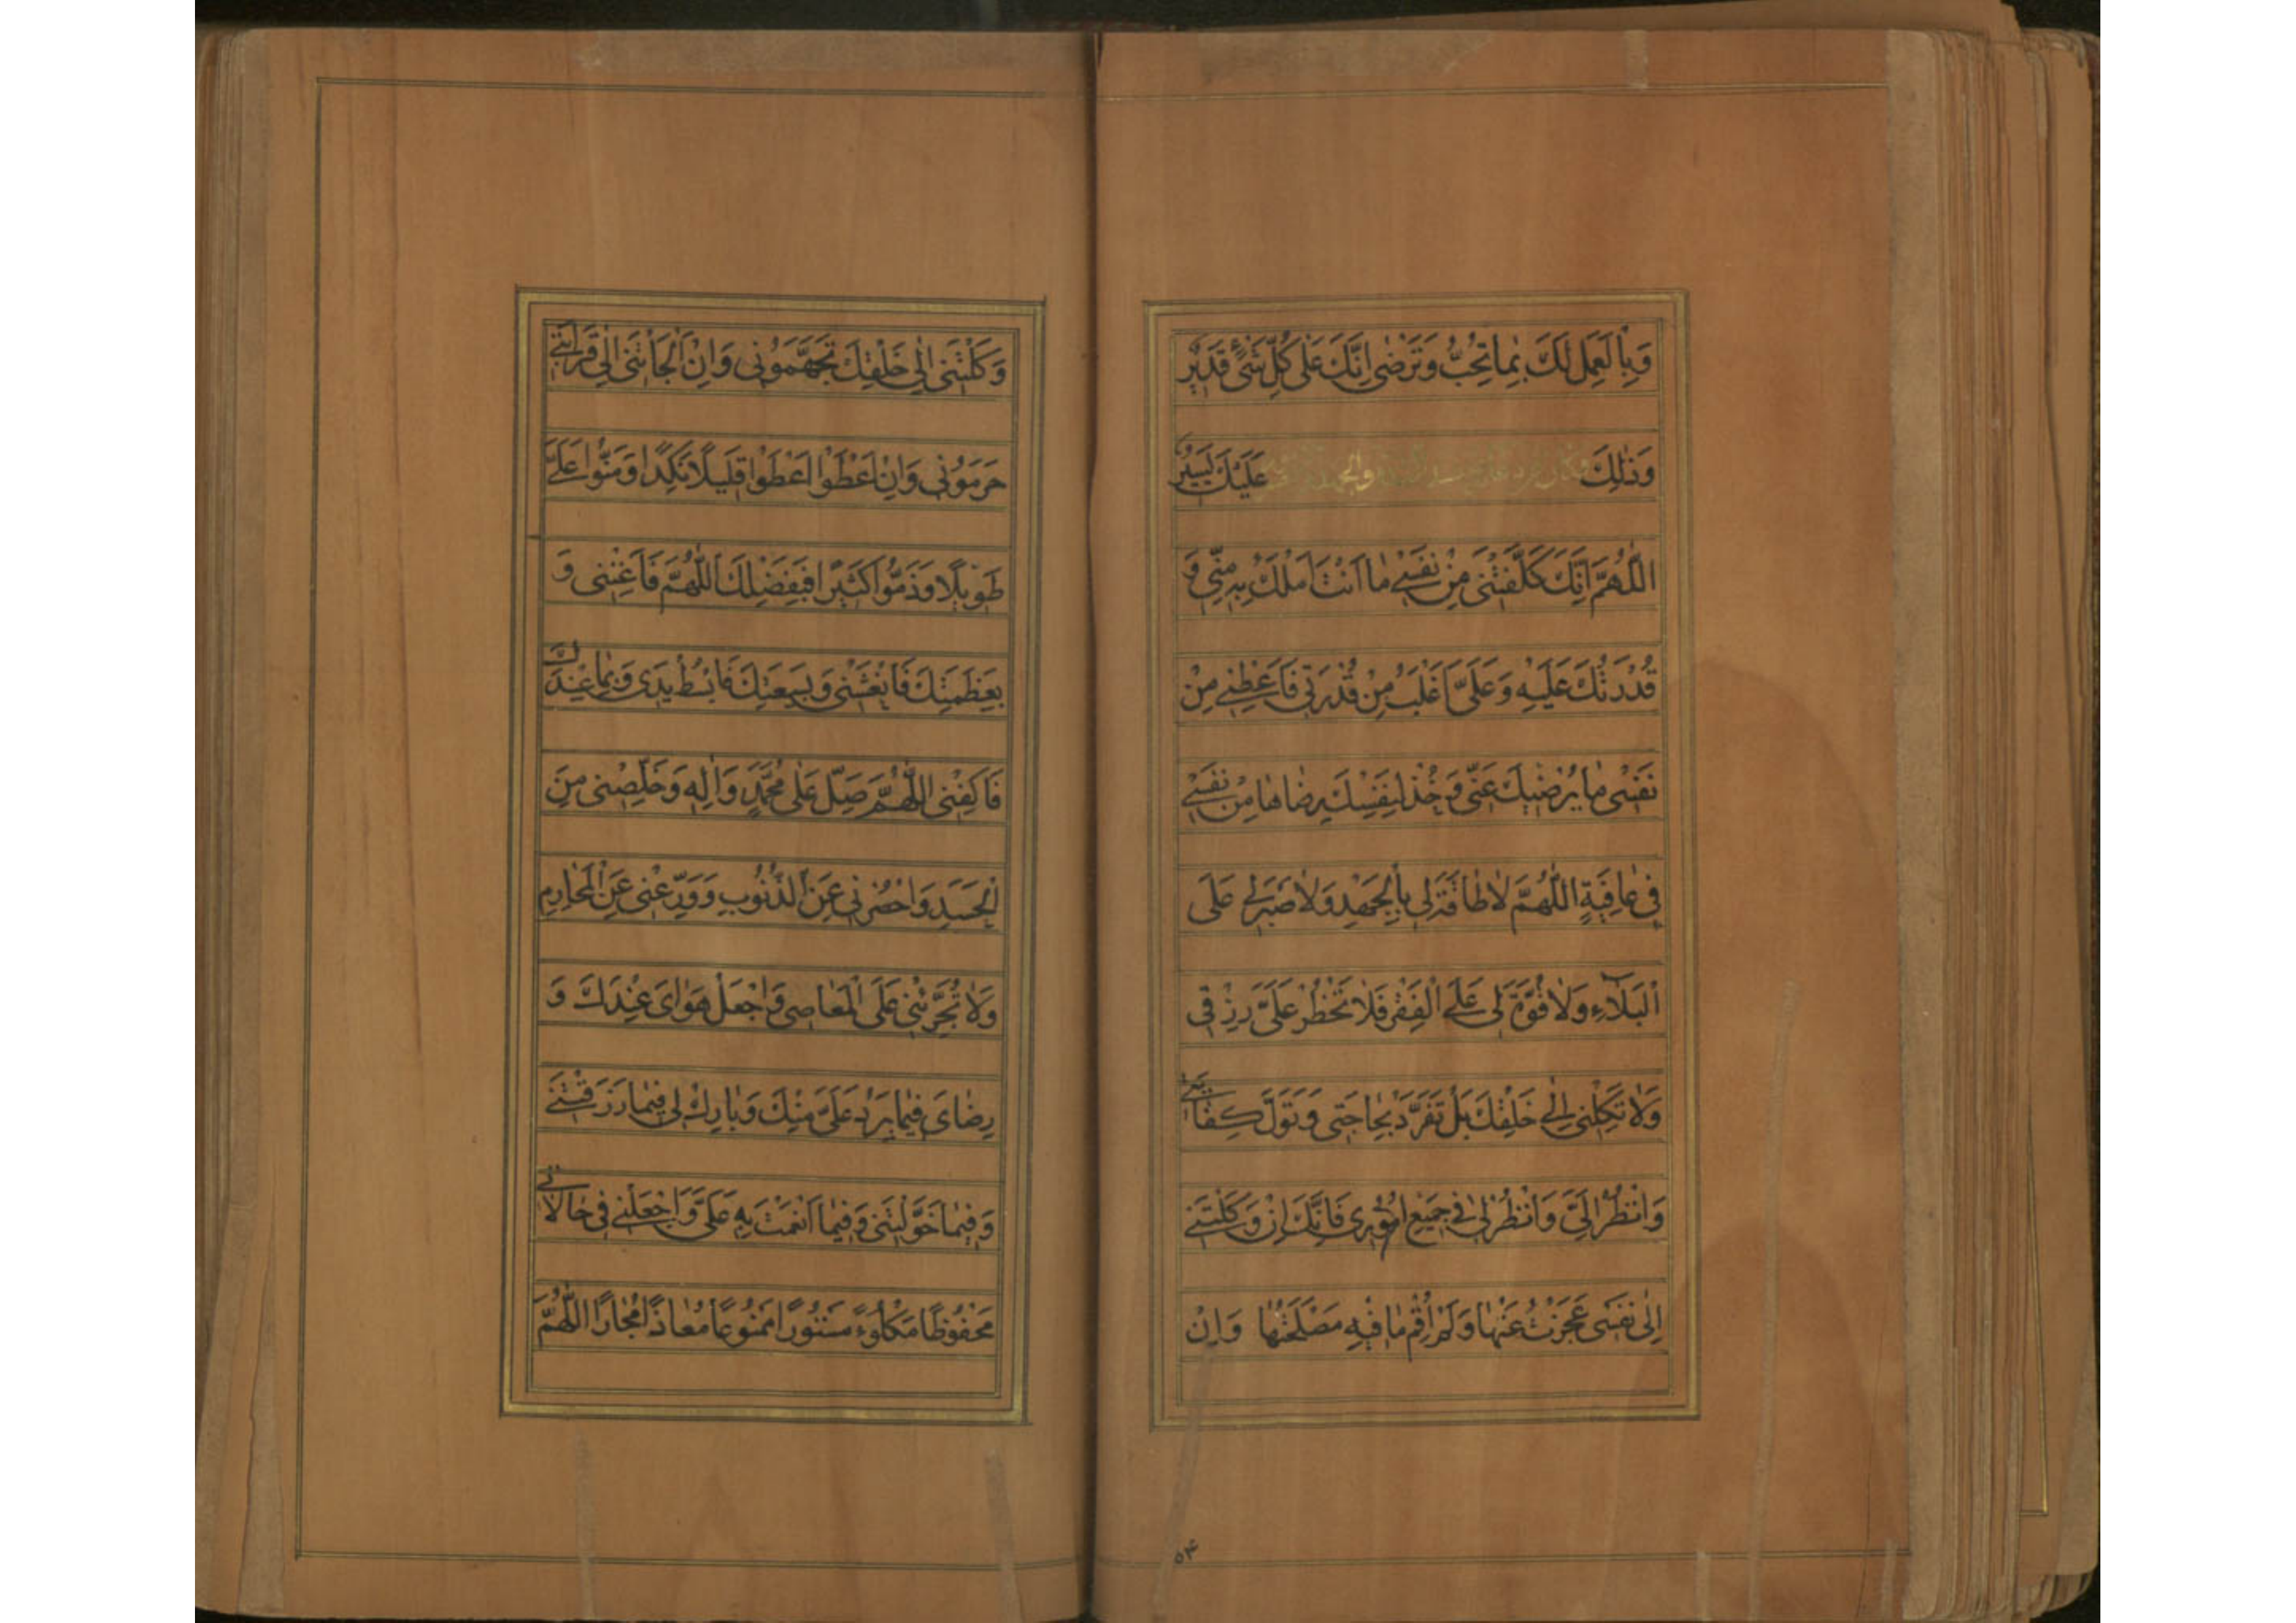 وَبِالْعَمَلِ لَكَ بِمَا تُحِبُّ وَتَرْضٰى اِنَّكَ عَلٰى كُلِّ شَىْءٍ قَدِيْرٌ
وَذٰلِكَ عَلَيْكَ يَسِيْرٌ
اَللّٰهُمَّ اِنَّكَ كَلَّفْتَنِى مِنْ نَفْسِى مٰا اَنْتَ اَمْلَكُ بِهِ مِنِّى وَ
قُدْرَتُكَ عَلَيْهِ وَعَلَىَّ اَغْلَبُ مِنْ قُدْرَتِى فَاَعْطِنِى مِنْ
نَفْسِى مٰا يُرْضِيْكَ عَنِّى وَخُذْ لِنَفْسِكَ رِضَاهٰا مِنْ نَفْسِى
فِى عٰافِيَةٍ اَللّٰهُمَّ لٰا طٰاقَةَ لِى بِالْجَهْدِ وَلٰا صَبْرَ لِى عَلَى
الْبَلٰٓاءِ وَلٰا قُوَّةَ لِى عَلَى الْفَقْرِ فَلٰا تَحْظُرْ عَلَىَّ رِزْقِى
وَلٰا تَكِلْنِى اِلٰى خَلْقِكَ بَلْ تَفَرَّدْ بِحٰاجَتِى وَتَوَلَّ كِفٰايَتِى
وَانْظُرْ اِلَىَّ وَانْظُرْ لِى فِى جَمِيْعِ اُمُوْرِى فَاِنَّكَ اِنْ وَكَلْتَنِى
اِلٰى نَفْسِى عَجَزْتُ عَنْهٰا وَلَمْ اُقِمْ مٰا فِيْهِ مَصْلَحَتُهٰا وَاِنْ
۵۴
وَكَلْتَنِى اِلٰى خَلْقِكَ تَجَهَّمُوْنِى وَاِنْ اَلْجَاْتَنِى اِلٰى قَرٰابَتِى
حَرَمُوْنِى وَاِنْ اَعْطَوْا اَعْطَوْا قَلِيْلًا نَكِدًا وَمَنُّوْا عَلَىَّ
طَوِيْلًا وَذَمُّوْا كَثِيْرًا فَبِفَضْلِكَ اللّٰهُمَّ فَاَغْنِنِى وَ
بِعَظَمَتِكَ فَانْعَشْنِى وَبِسَعَتِكَ فَابْسُطْ يَدِى وَبِمٰا عِنْدَكَ
فَاكْفِنِى اَللّٰهُمَّ صَلِّ عَلٰى مُحَمَّدٍ وَاٰلِهِ وَخَلِّصْنِى مِنَ
الْحَسَدِ وَاحْصُرْنِى عَنِ الذُّنُوْبِ وَوَرِّعْنِى عَنِ الْمَحٰارِمِ
وَلٰا تُجَرِّئْنِى عَلَى الْمَعٰاصِى وَاجْعَلْ هَوٰاىَ عِنْدَكَ وَ
رِضٰاىَ فِيْمٰا يَرِدُ عَلَىَّ مِنْكَ وَبٰارِكْ لِى فِيْمٰا رَزَقْتَنِى
وَفِيْمٰا خَوَّلْتَنِى وَفِيْمٰا اَنْعَمْتَ بِهِ عَلَىَّ وَاجْعَلْنِى فِى حٰالٰاتِى
مَحْفُوْظًا مَكْلُوْءً مَسْتُوْرًا مَمْنُوْعًا مُعٰاذًا مُجٰارًا اَللّٰهُمَّ